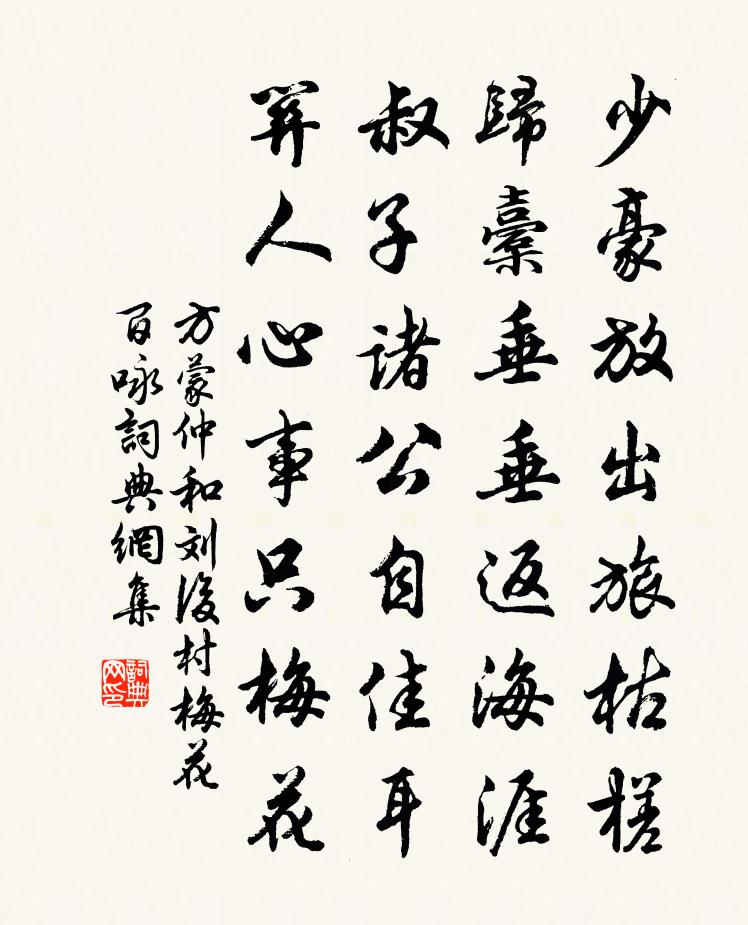 少豪放出旅枯槎
歸橐垂垂返海涯
叔子諸公自佳耳
關人心事只梅花
方蒙仲和刘後村梅花
百咏詞典網集
詞典网印